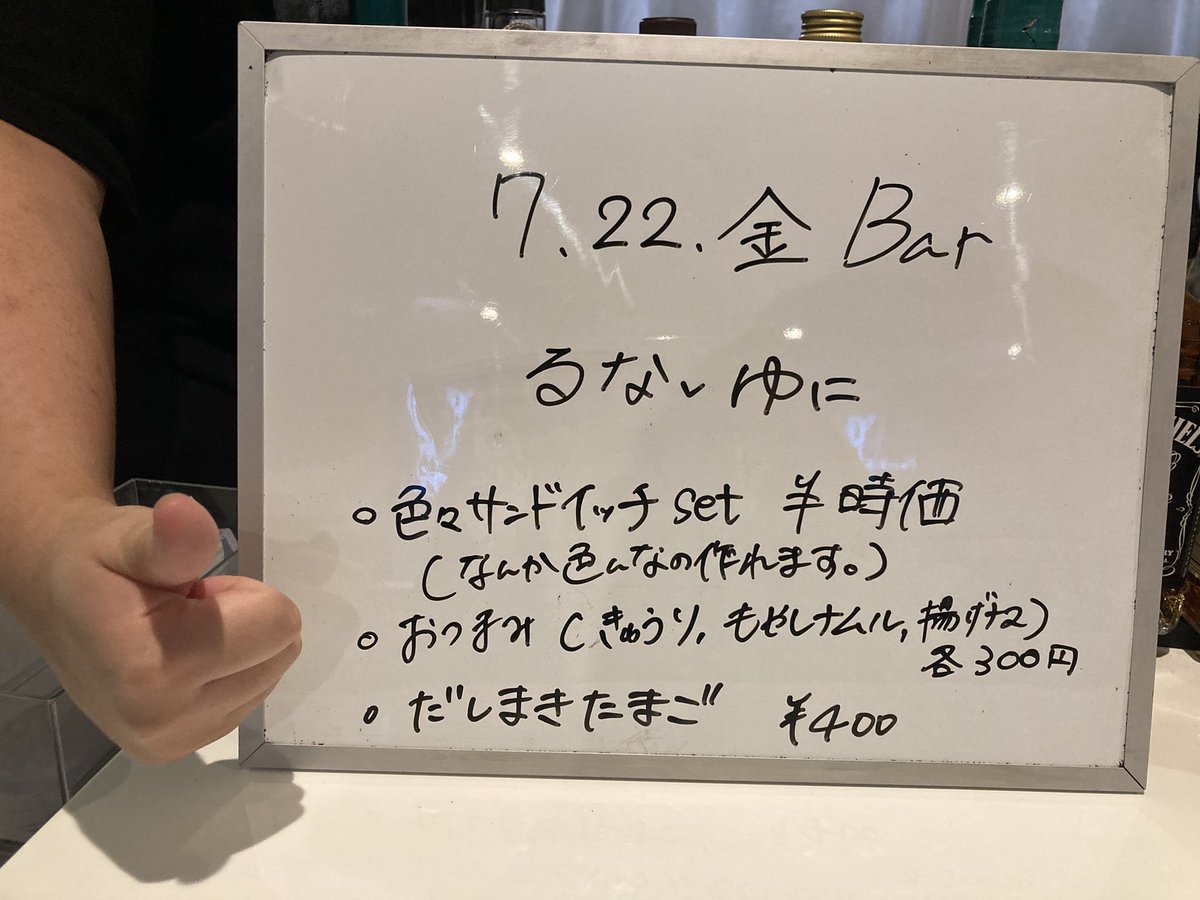 7.22.金 Bar
るない ゆに
色々サンドイッチ set ¥時価
(なんか色んなの作れます。)
おつまみ (きゅうり, もやしナムル, 揚げナス)
各300円
だしまきたまご ¥400